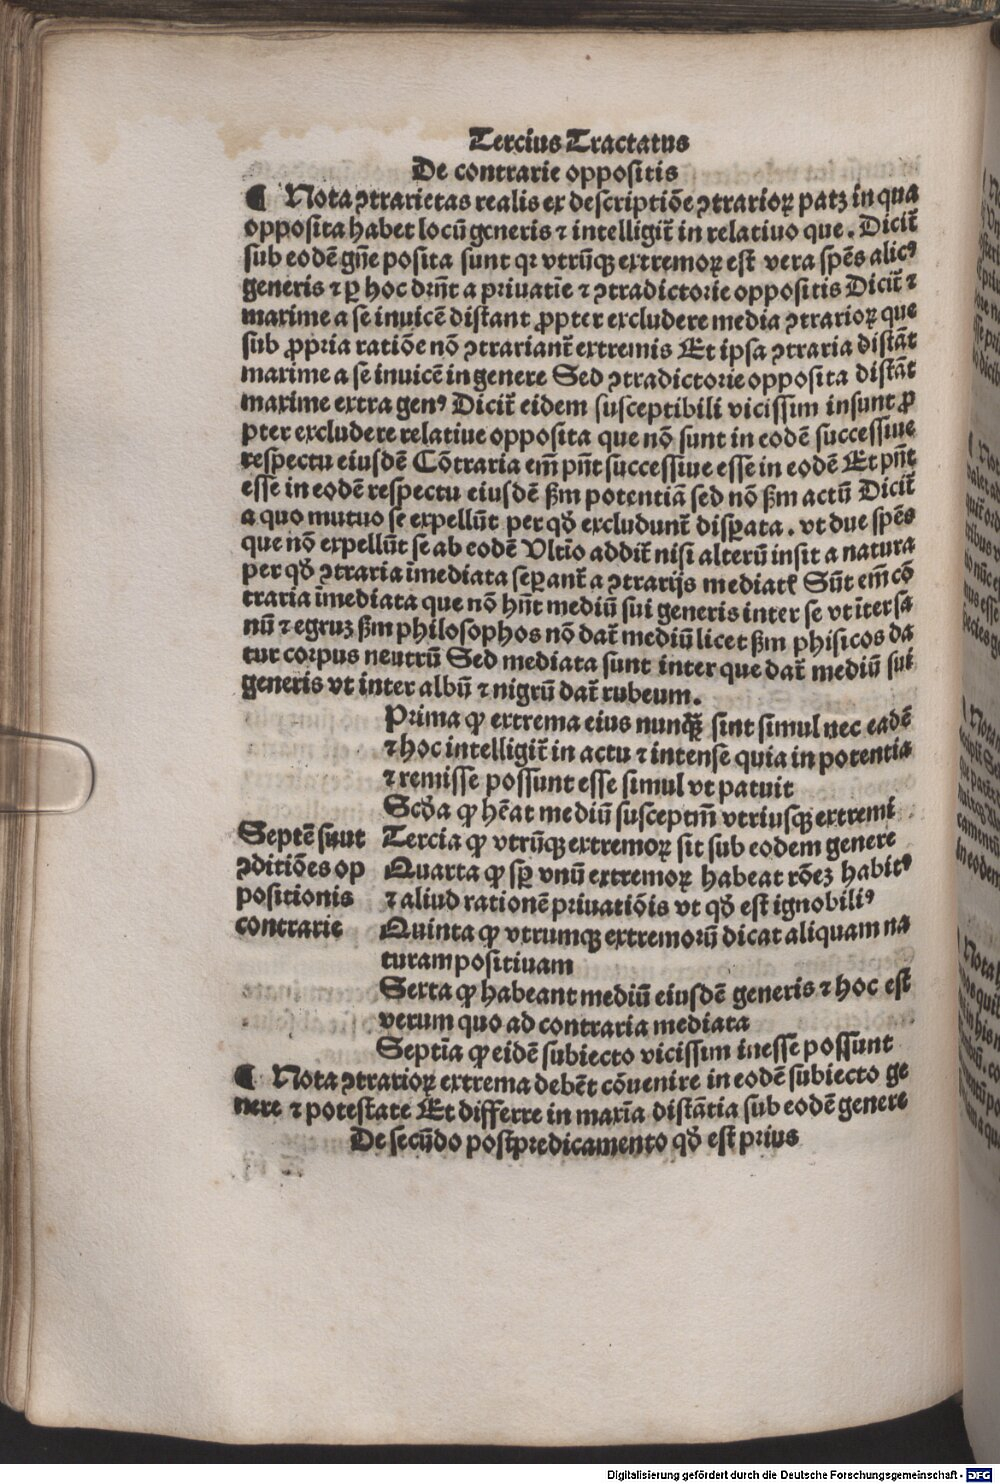 Tercius Tractatus
De contrarie oppositis
¶ Nota ↄtrarietas realis ex descriptiōe ↄtrarioꝝ patꝫ in qua
opposita habet locū generis ⁊ intelligit̄ in relatiuo que. Dicit̄
sub eodē gn̄e posita sunt qꝛ vtrūqꝫ extremoꝝ est vera spēs alicꝰ
generis ⁊ ꝑ hoc drn̄t a priuatīe ⁊ ↄtradictorie oppositis Dicit̄ ⁊
maxime a se inuicē distant ꝓpter excludere media ↄtrarioꝝ que
sub ꝓpria ratiōe nō ↄtrariant̄ extremis Et ipsa ↄtraria distāt
maxime a se inuicē in genere Sed ↄtradictorie opposita distāt
maxime extra genꝰ Dicit̄ eidem susceptibili vicissim insunt ꝓ
pter excludere relatiue opposita que nō sunt in eodē successiue
respectu eiusdē Cōtraria em̄ pn̄t successiue esse in eodē Et pn̄t
esse in eodē respectu eiusdē ẜm potentiā sed nō ẜm actū Dicit̄
a quo mutuo se expellūt per qđ excludunt̄ disꝑata. vt due spēs
que nō expellūt se ab eodē Vltīo addit̄ nisi alterū insit a natura
per qđ ↄtraria īmediata seꝑant̄ a ↄtrarijs mediatꝭ Sūt em̄ cō
traria īmediata que nō hn̄t mediū sui generis inter se vt īter sa
nū ⁊ egruꝫ ẜm philosophos nō dat̄ mediū licet ẜm phisicos da
tur corpus neutrū Sed mediata sunt inter que dat̄ mediū sui
generis vt inter albū ⁊ nigrū dat̄ rubeum.
Prima ꝙ extrema eius nunqꝫ̄ sint simul nec eadē
⁊ hoc intelligit̄ in actu ⁊ intense quia in potentia
⁊ remisse possunt esse simul vt patuit
Scđa ꝙ hēat mediū susceptīm vtriusqꝫ extremi
Septē sunt
ↄditiōes op
positionis
contrarie
Tercia ꝙ vtrūqꝫ extremoꝝ sit sub eodem genere
Quarta ꝙ sꝑ vnū extremoꝝ habeat rōeꝫ habitꝰ
⁊ aliud rationē priuatiōis vt qđ est ignobiliꝰ
Quinta ꝙ vtrumqꝫ extremorū dicat aliquam na
turam positiuam
Sexta ꝙ habeant mediū eiusdē generis ⁊ hoc est
verum quo ad contraria mediata
Septīa ꝙ eidē subiecto vicissim inesse possunt
¶ Nota ↄtrarioꝝ extrema debēt cōuenire in eodē subiecto ge
nere ⁊ potestate Et differre in maxīa distātia sub eodē genere
De secūdo postpredicamento qđ est prius
Digitalisierung gefördert durch die Deutsche Forschungsgemeinschaft - DFG